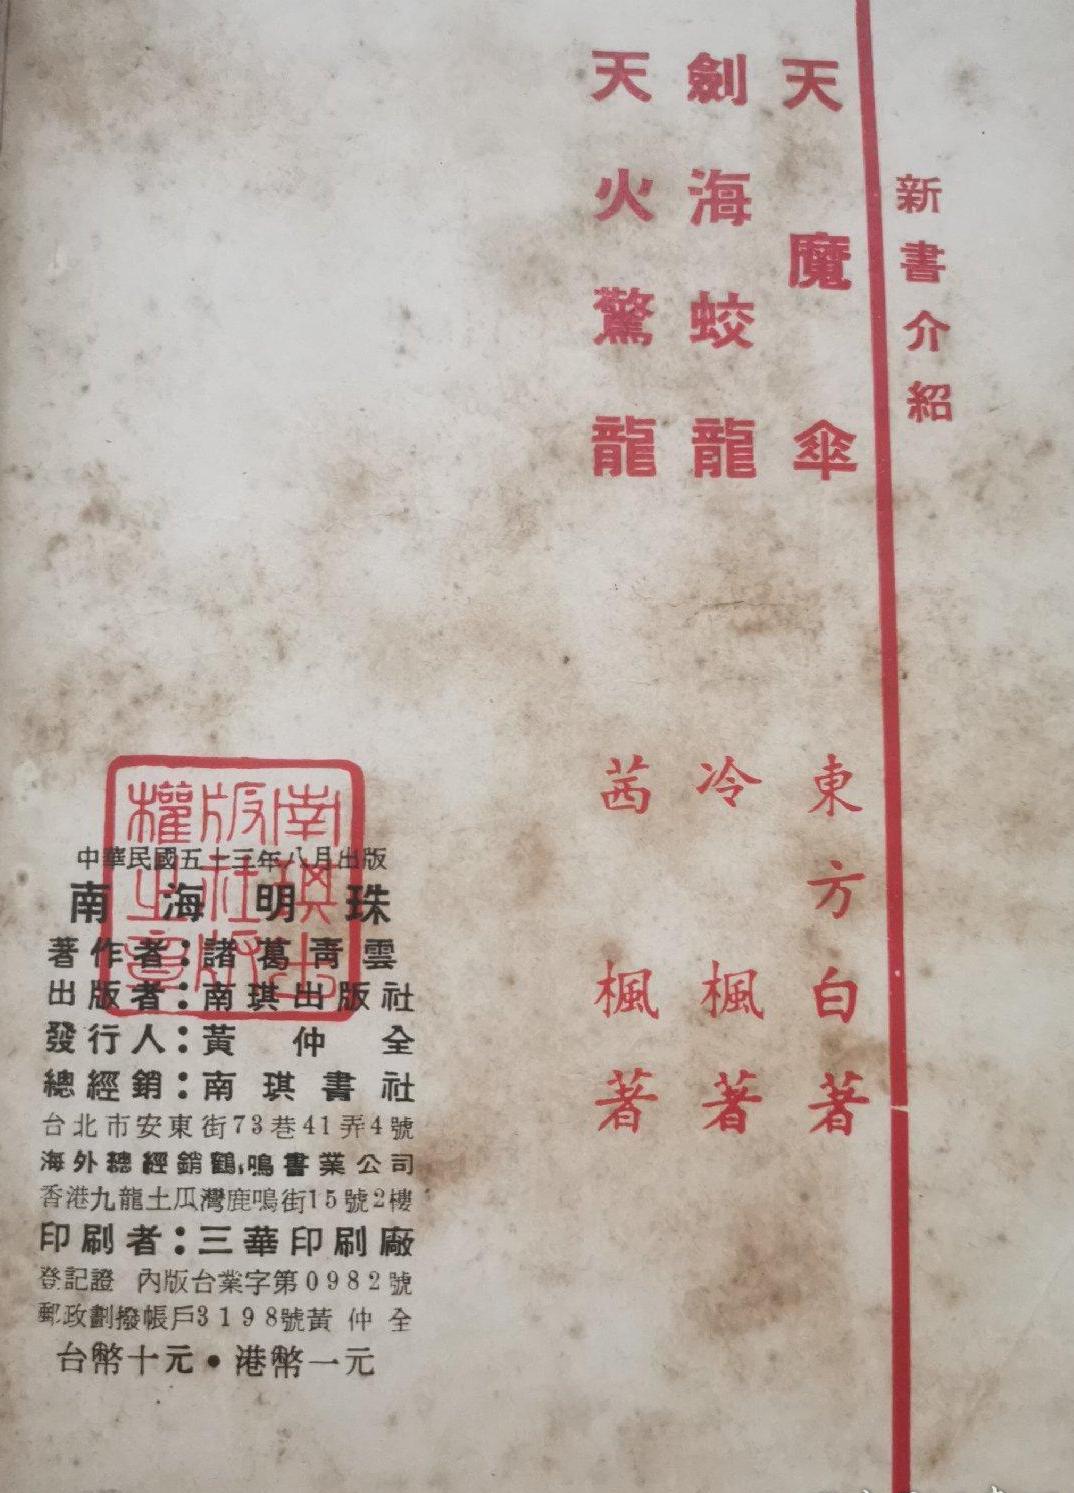 新書介紹
天魔傘 東方白著
劍海蛟龍 冷楓著
天火驚龍 茜楓著
南琪出版社版權之章
中華民國五十三年八月出版
南海明珠
著作者：諸葛靑雲
出版者：南琪出版社
發行人：黃仲全
總經銷：南琪書社
台北市安東街73巷41弄4號
海外總經銷鶴鳴書業公司
香港九龍土瓜灣鹿鳴街15號2樓
印刷者：三華印刷廠
登記證 內版台業字第0982號
郵政劃撥帳戶3198號黃仲全
台幣十元・港幣一元